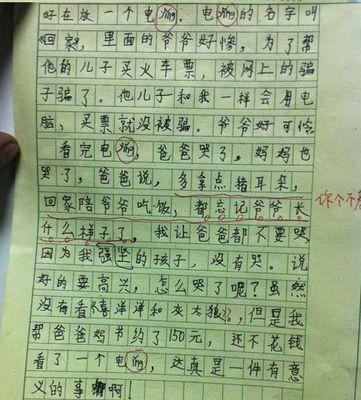 好在放一个电ying。电ying的名字叫
《回家》,里面的爷爷好惨,为了帮
他的儿子买火车票,被网上的骗
子骗了。他儿子和我一样会用电
脑,买票就没被骗。爷爷好可怜
看完电ying,爸爸哭了,妈妈也
哭了,爸爸说,多拿点猪耳朵,
回家陪爷爷吃饭,都忘记爷爷长
什么样子了,我让爸爸都不要哭
因为我强坚的孩子,没有哭。说
好的要高兴,怎么哭了呢?虽然
没有看《喜洋洋和灰太狼》,但是我
帮爸爸妈节约了150元,还不花钱
看了一个电ying,这真是一件有意
义的事啊!
你个不孝